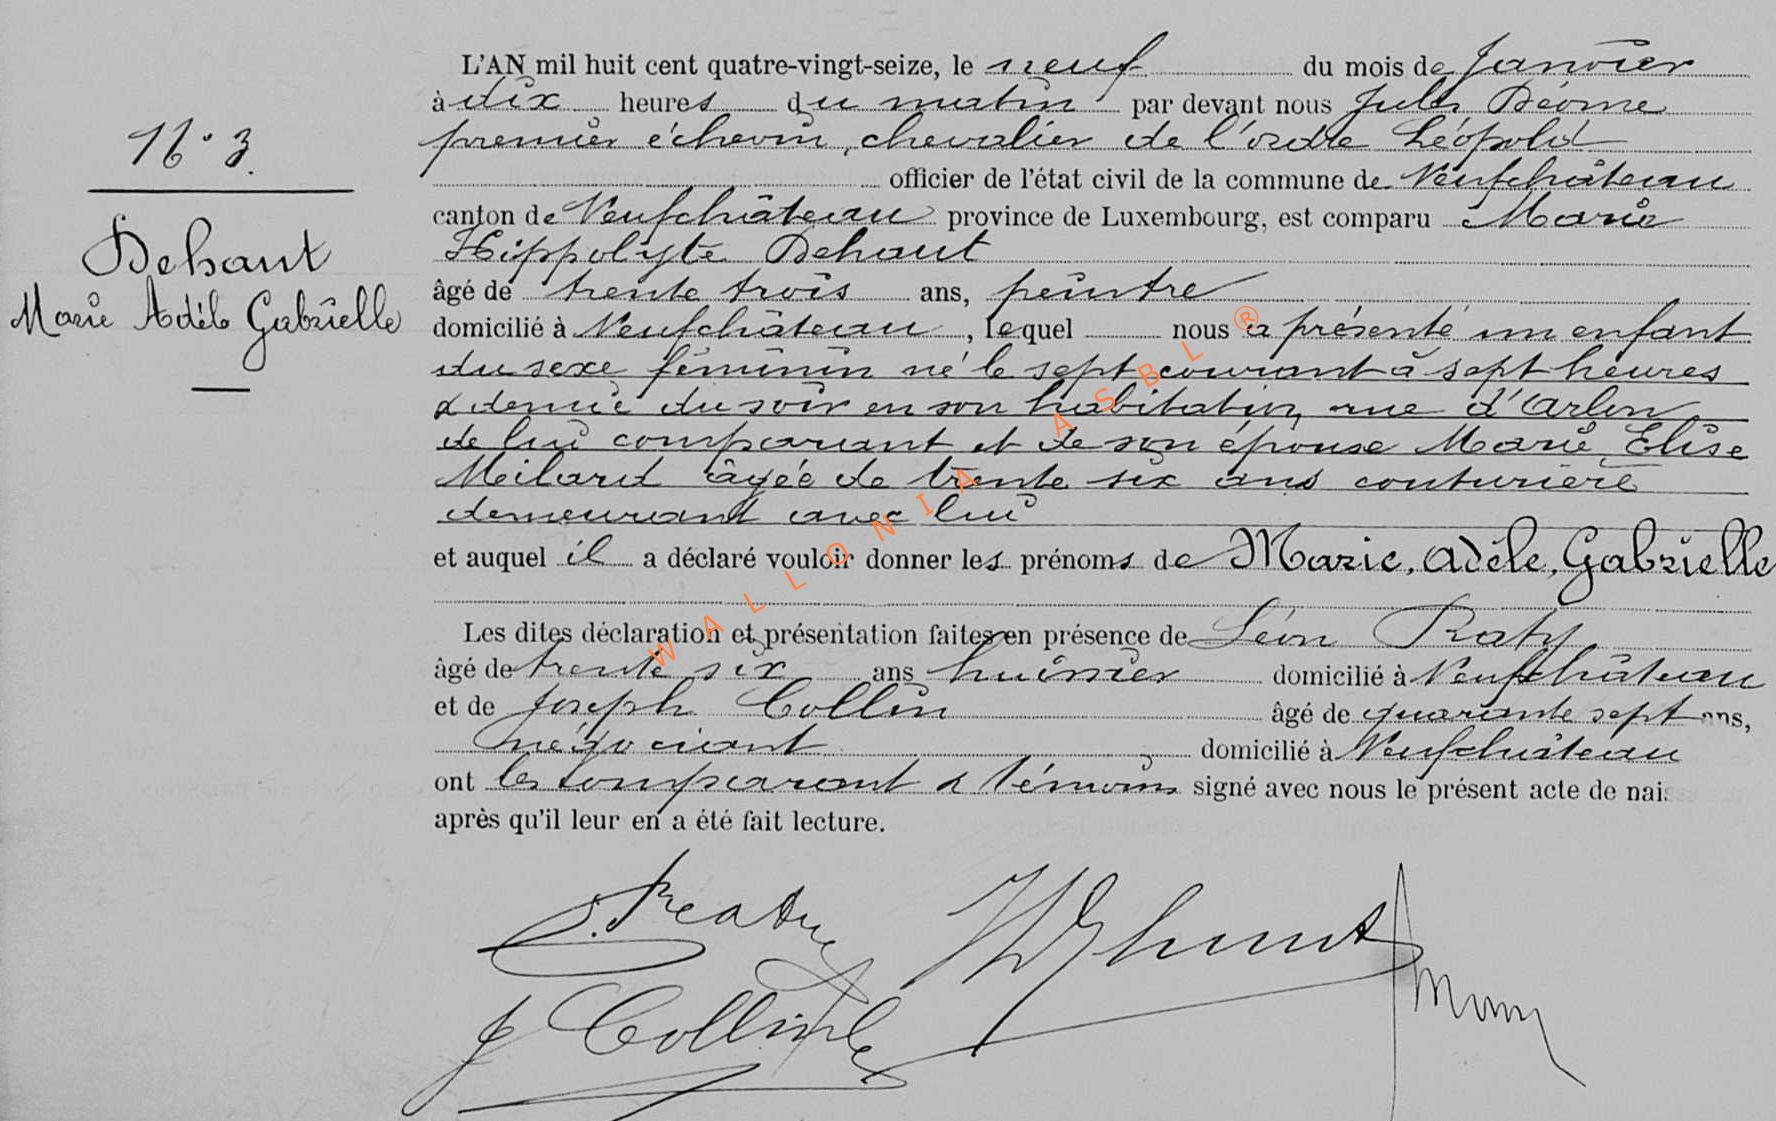 L'AN mil huit cent quatre-vingt-seize, le neuf du mois de Janvier
à dix heures du matin par devant nous Jules Déome
premier échevin, chevalier de l'ordre Léopold
officier de l'état civil de la commune de Neufchâteau
canton de Neufchâteau province de Luxembourg, est comparu Marie
Hippolyte Dehaut
âgé de trente trois ans, peintre
domicilié à Neufchâteau, lequel nous a présenté un enfant
du sexe féminin né le sept courant à sept heures
& demie du soir en son habitation, rue d'Arlon
de lui comparant et de son épouse Marie Elise
Meilard âgée de trente six ans couturière
demeurant avec lui
et auquel il a déclaré vouloir donner les prénoms de Marie, Adèle, Gabrielle
Les dites déclaration et présentation faites en présence de Léon Praty
âgé de trente six ans huissier domicilié à Neufchâteau
et de Joseph Collin âgé de quarante sept ans,
négociant domicilié à Neufchâteau
ont les comparant & témoins signé avec nous le présent acte de nais
après qu'il leur en a été fait lecture.
N° 3.
Dehaut
Marie Adèle Gabrielle
WALLONIA ASBL ®
J Collin